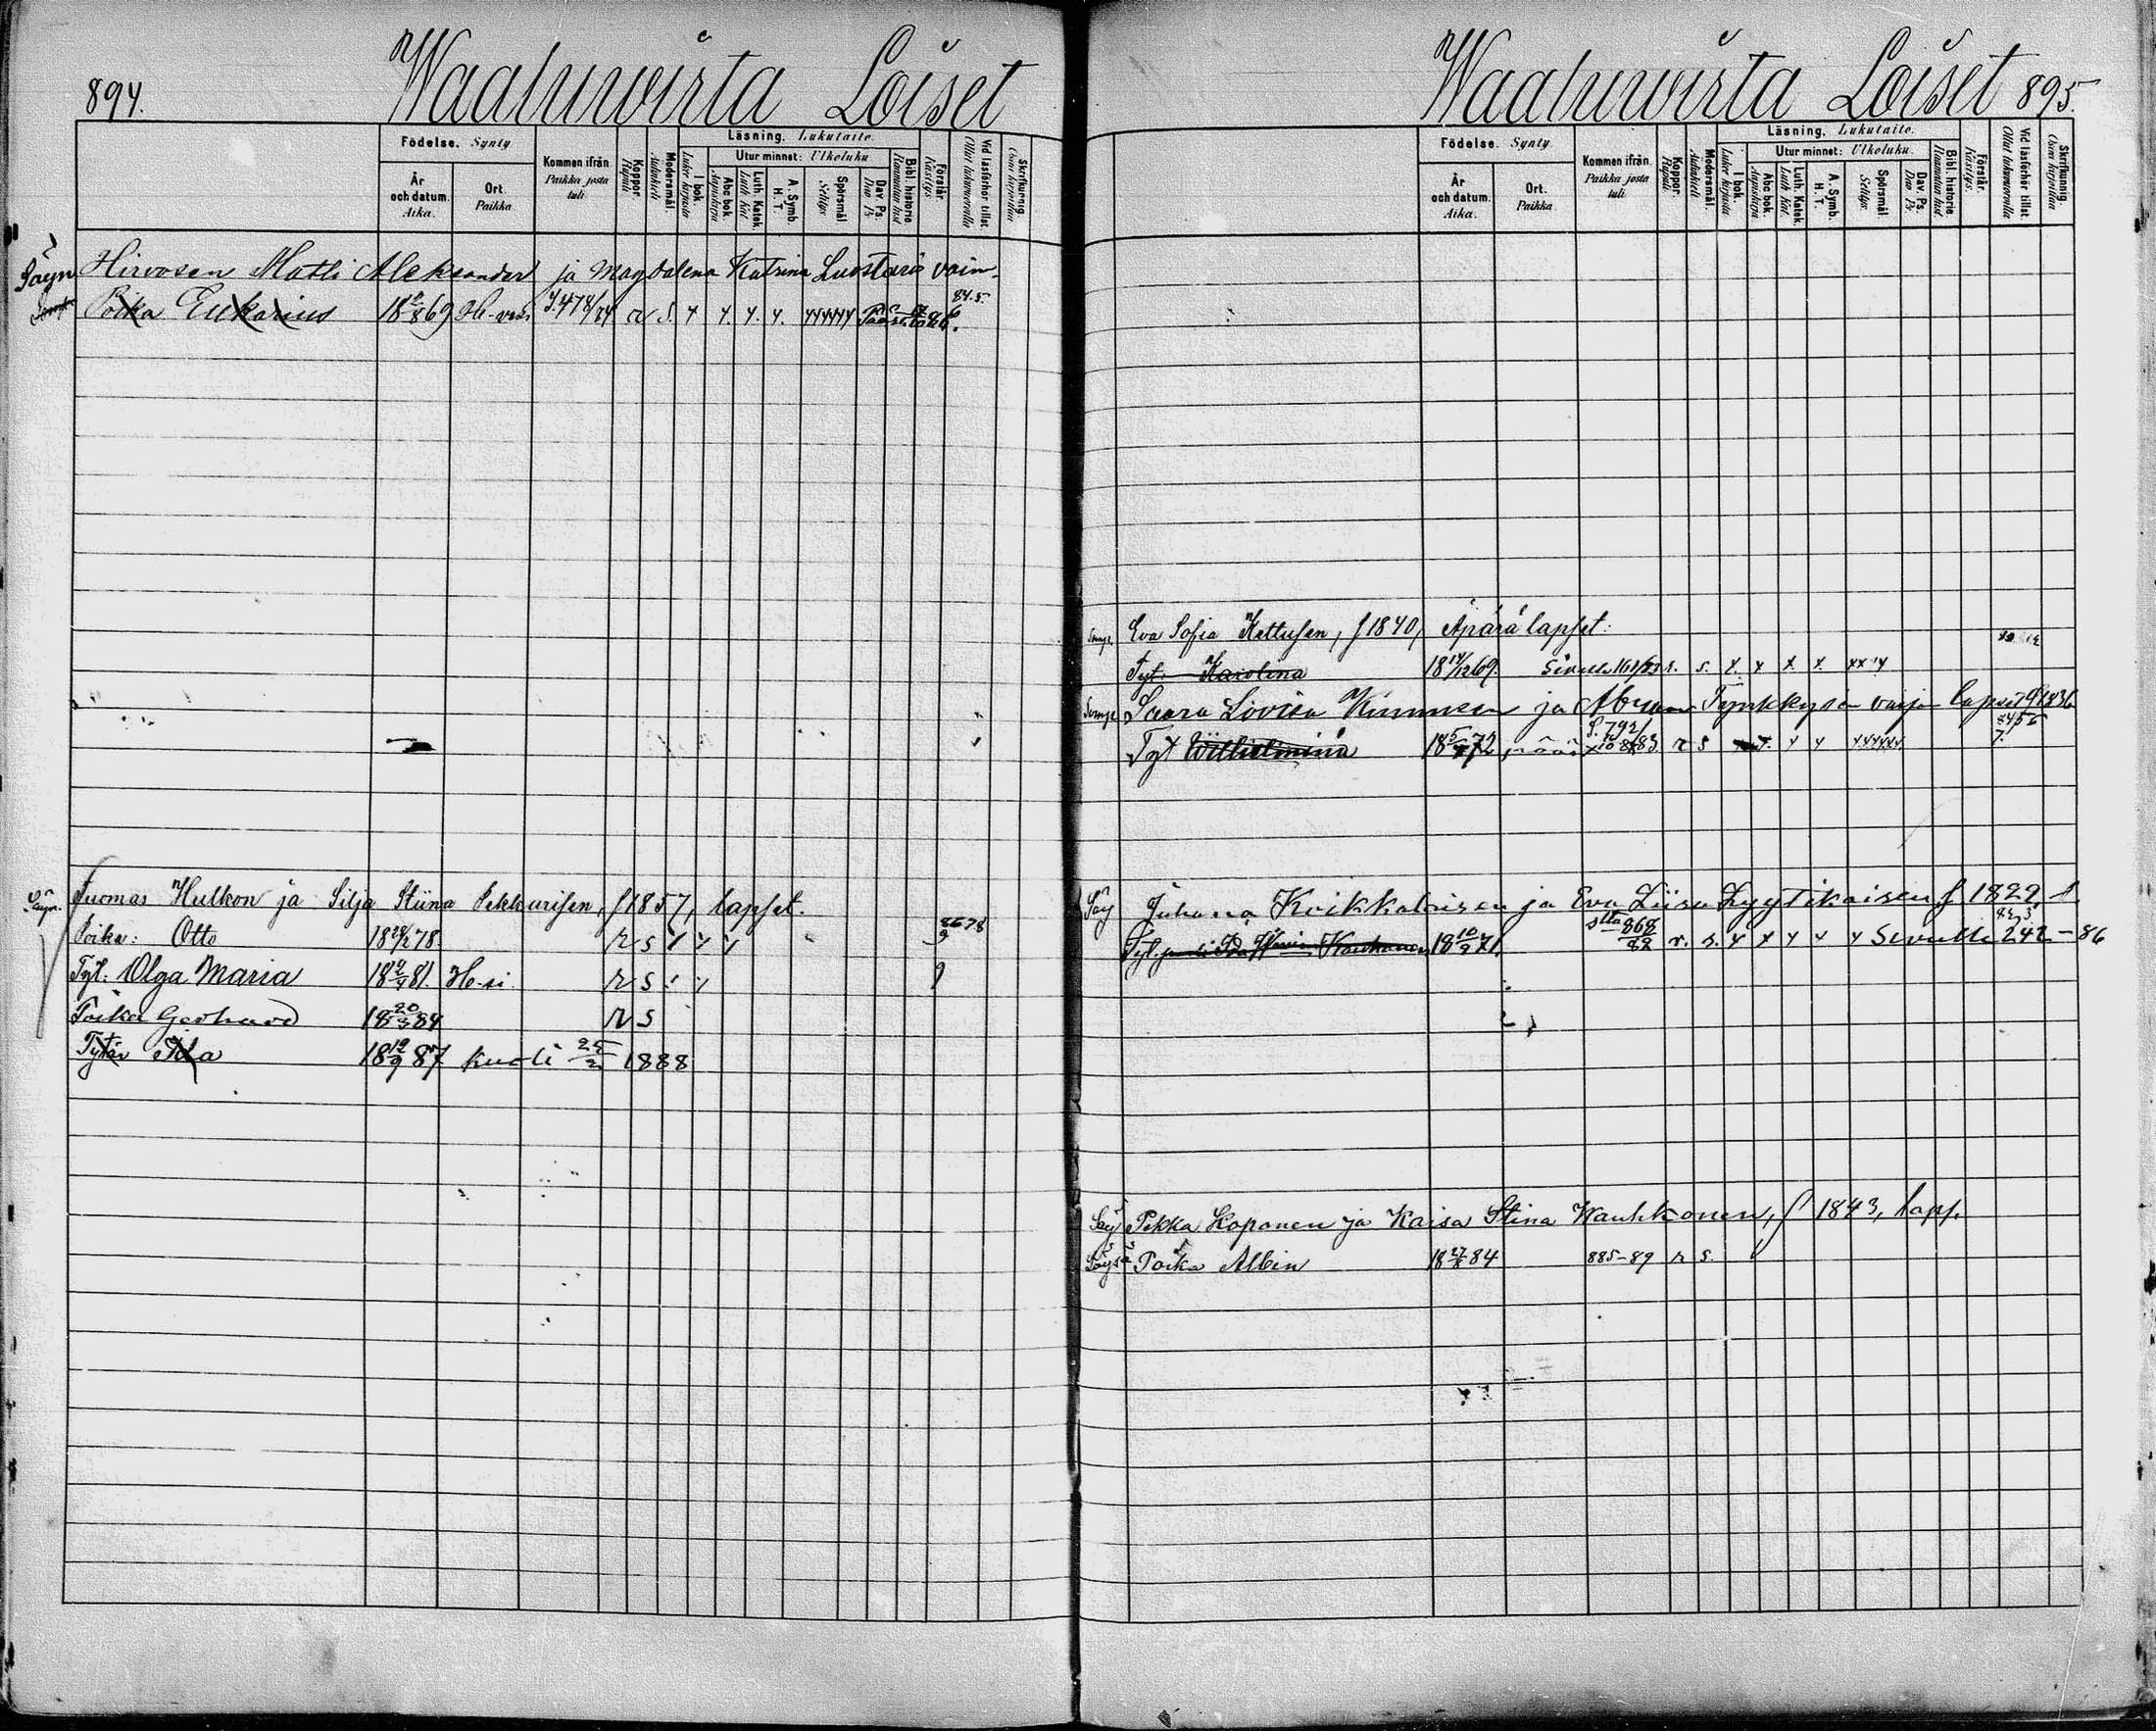 894.
Waaluwirta Loiset
Födelse. Synty
År och datum. Aika.
Ort. Paikka
Kommen ifrån. Paikka josta tuli
Koppor. Rupuli
Modersmål. Äidinkieli
Läsning. Lukutaito.
I bok. Lukee kirjasta
Utur minnet: Ulkoluku
Abc bok. Aapiskirja
Luth. Katek. Luth. Kat.
A. Symb. H. T.
Spörsmål Selitys
Dav. Ps. Dav. Ps.
Bibl. historie Raamatun hist.
Förstår. Käsitys.
Vid läsförhör tillst. Ollut lukuvuorolla
Skrifkunnig. Osaa kirjoittaa
Säyn Hirvosen Matti Aleksander ja Magdalena Katrina Luostaris vaim.
84.5.
Poika Eukarius 18 869 S. 478/84 r s.
Säyn. Tuomas Hulkon ja Silja Stiina Pekkarisen, f 1857, lapset.
Poika: Otto 18 78. r s 8678
Tyt: Olga Maria 18 81. H-si r s
Poika Gerhard 18 20/3 84 r s
Tytär Ida 18 19/9 87 kuoli 25/2 1888
Waaluwirta Loiset 895.
Födelse. Synty.
År och datum. Aika.
Ort. Paikka.
Kommen ifrån. Paikka josta tuli.
Koppor. Rupuli
Modersmål. Äidinkieli
Läsning. Lukutaito.
I bok. Lukee kirjasta
Utur minnet: Ulkoluku.
Abc bok. Aapiskirja
Luth. Katek. Luth. Kat.
A. Symb. H. T.
Spörsmål Selitys.
Dav. Ps. Dav. Ps.
Bibl. historie Raamatun hist.
Förstår. Käsitys.
Vid läsförhör tillst. Ollut lukuvuorolla
Skrifkunnig. Osaa kirjoittaa
Eva Sofia Kettusen, f 1840, Äpärä lapset:
Tyt. Karolina 18 14/12 69. r. s.
Saara Lovisa Kinnusen ja Abram Tynkkysen lapset f 1836
Tyt Wilhelmiina 18 72 S. 792/83 r s
Säy Juhana Koikkalaisen ja Eva Liisa Lyytikäisen f 1822, l.
Tyt. Kauhanen 18 10/9 71. 868/82 r. s. Sivulle 242-86
Säy Pekka Koponen ja Kaisa Stina Wauhkonen, f 1843, laps.
Poika Albin 18 84 885-89 r s.